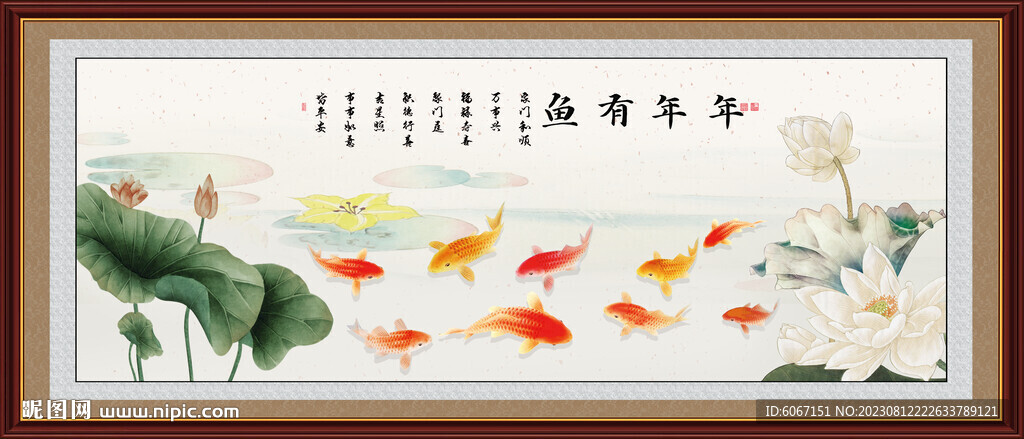 年年有鱼
家门和顺
万事兴
福禄寿喜
聚门庭
积德行善
吉星照
事事如意
皆平安
昵图网 www.nipic.com
ID:6067151 NO:20230812222633789121